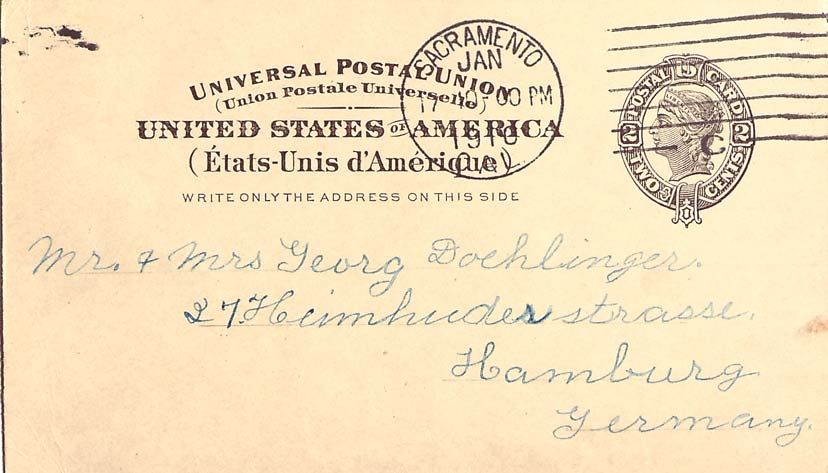 UNIVERSAL POSTAL UNION
(Union Postale Universelle)
UNITED STATES OF AMERICA
(États-Unis d'Amérique)
WRITE ONLY THE ADDRESS ON THIS SIDE
SACRAMENTO
JAN
17 00 PM
1910
CAL
POSTAL CARD
TWO 2 CENTS 2
C
Mr. & Mrs Georg Doehlinger.
27. Heimhuderstrasse.
Hamburg
Germany.